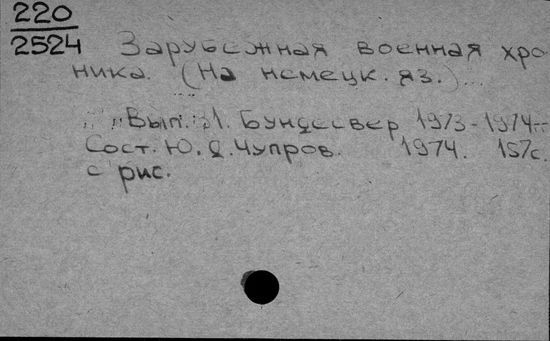 220
2524
Зарубежная военная хро
ника. (На немецк. яз.)...
Вып. 1. Бундесвер 1973-1974
Сост. Ю. Чупров. 1974. 157с.
с рис.